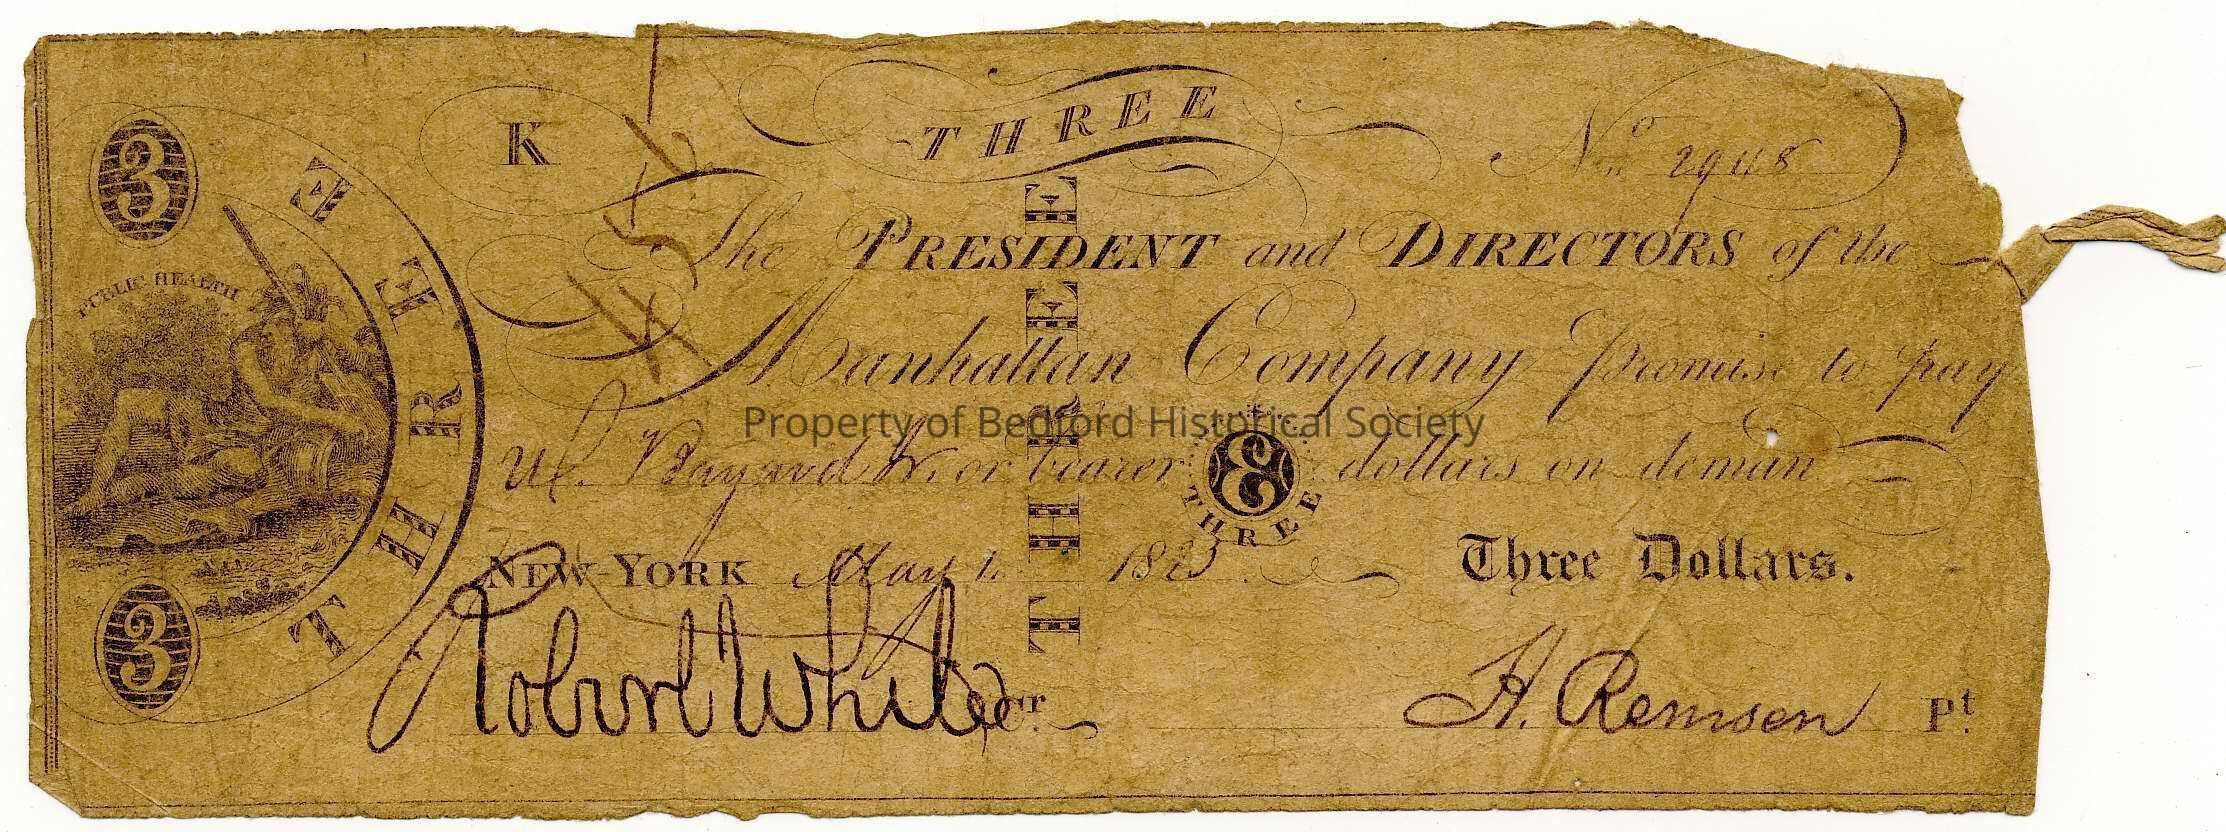 3
THREE
K
THREE
No 2948
PUBLIC HEALTH
The PRESIDENT and DIRECTORS of the
Manhattan Company Promise to pay
Property of Bedford Historical Society
W. Bayard or bearer 3 dollars on deman
THREE
THREE
NEW-YORK May 1. 1825
Three Dollars.
3
Robert White
H. Remsen Pt.